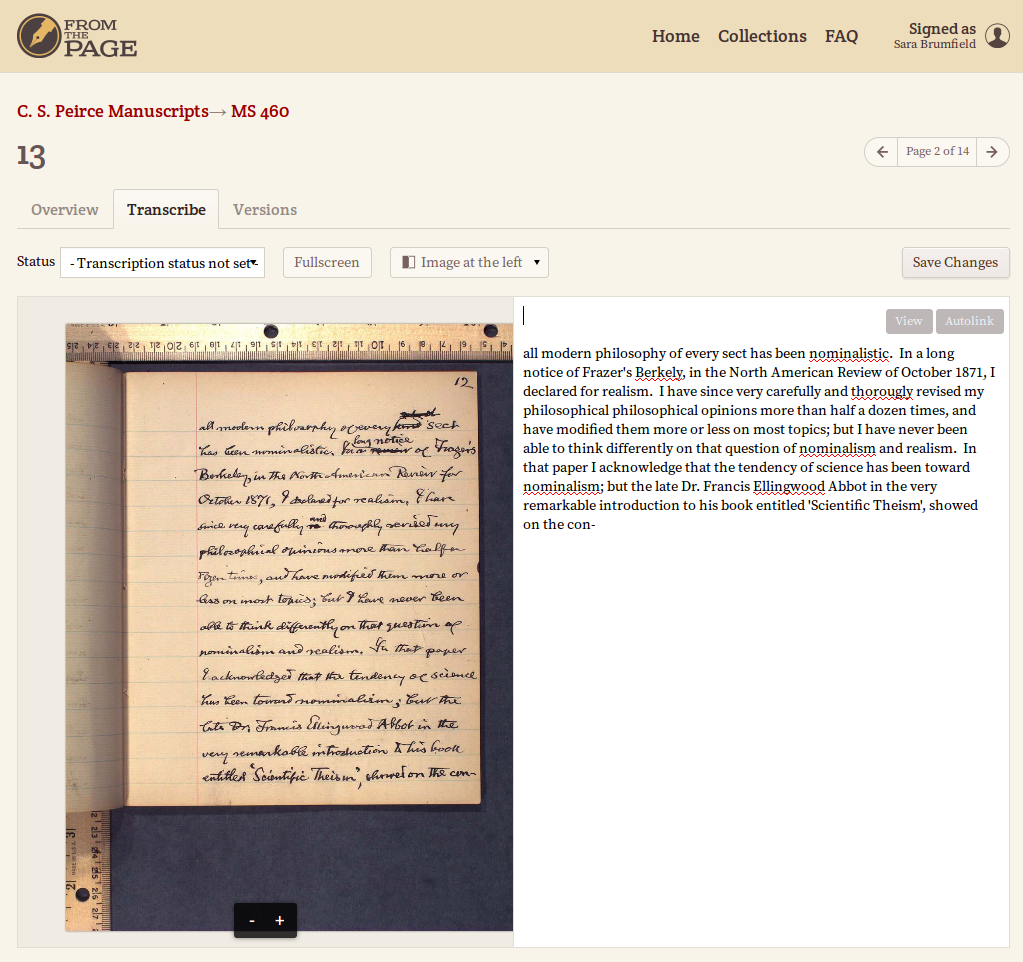 FROM
THE
PAGE
Home Collections FAQ
Signed as
Sara Brumfield
C. S. Peirce Manuscripts→ MS 460
13
← Page 2 of 14 →
Overview Transcribe Versions
Status - Transcription status not set - Fullscreen Image at the left Save Changes
12
all modern philosophy of every sect
has been nominalistic. In a long notice of Frazer's
Berkeley, in the North American Review for
October 1871, I declared for realism. I have
since very carefully and thoroughly revised my
philosophical opinions more than half a
dozen times, and have modified them more or
less on most topics; but I have never been
able to think differently on that question of
nominalism and realism. In that paper
I acknowledged that the tendency of science
has been toward nominalism; but the
late Dr. Francis Ellingwood Abbot in the
very remarkable introduction to his book
entitled "Scientific Theism", showed on the con-
- +
View Autolink
all modern philosophy of every sect has been nominalistic. In a long
notice of Frazer's Berkely, in the North American Review of October 1871, I
declared for realism. I have since very carefully and thorougly revised my
philosophical philosophical opinions more than half a dozen times, and
have modified them more or less on most topics; but I have never been
able to think differently on that question of nominalism and realism. In
that paper I acknowledge that the tendency of science has been toward
nominalism; but the late Dr. Francis Ellingwood Abbot in the very
remarkable introduction to his book entitled 'Scientific Theism', showed
on the con-